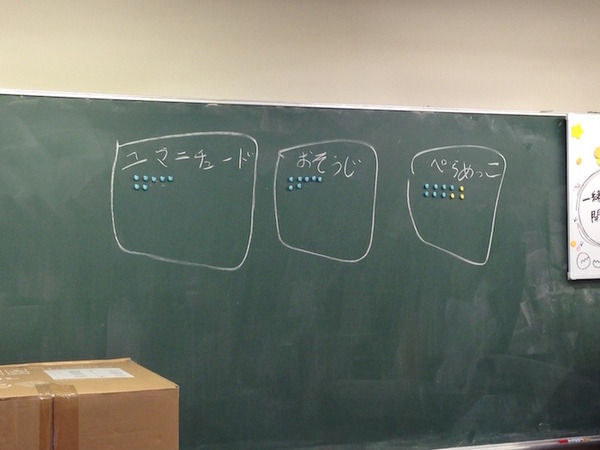 ユマニチュード
おそうじ
ぺらめっこ
一緑